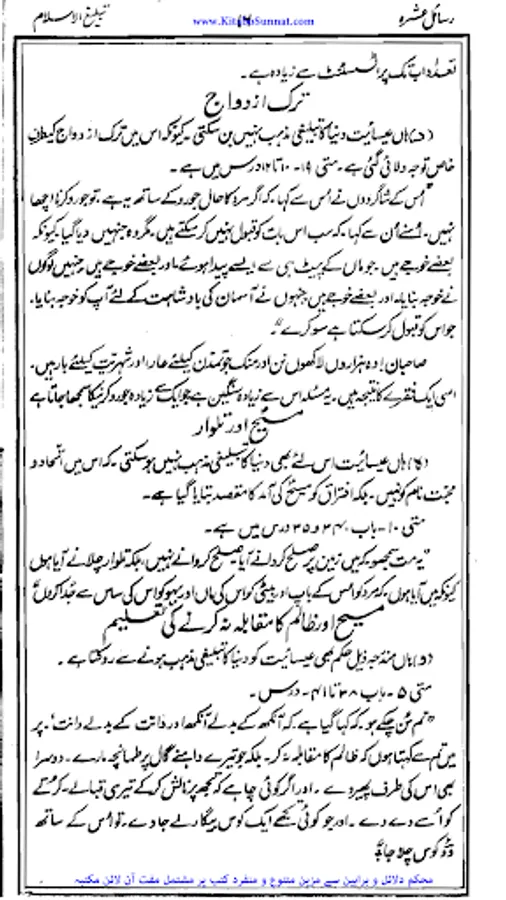 رسائل عشرہ
www.KitaboSunnat.com
تبلیغ الاسلام
تعداد اب تک پراٹسٹنٹ سے زیادہ ہے۔
ترک ازدواج
ہاں عیسائیت دنیا کا تبلیغی مذہب نہیں بن سکتی۔ کیونکہ اس میں ترک ازدواج کیطرف
خاص توجہ دلائی گئی ہے۔ متی ۱۹۔ ۱۰ تا ۱۲ درس میں ہے۔
"اُس کے شاگردوں نے اُس سے کہا، کہ اگر مرد کا حال جورو کے ساتھ یہ ہے، تو جورو کرنا اچھا
نہیں۔ اُسنے اُن سے کہا، کہ سب اس بات کو قبول نہیں کر سکتے ہیں، مگر وہ جنہیں دیا گیا، کیونکہ
بعضے خوجے ہیں۔ جو ماں کے پیٹ ہی سے ایسے پیدا ہوئے، اور بعضے خوجے ہیں جنہیں لوگوں
نے خوجہ بنایا، اور بعضے خوجے ہیں جنہوں نے آسمان کی بادشاہت کے لئے آپ کو خوجہ بنایا۔
جو اس کو قبول کر سکتا ہے سو کرے"۔
صاحبان! وہ ہزاروں لاکھوں نن اور منک جو تمدن کیلئے عار اور شہریت کیلئے بار ہیں۔
اسی ایک فقرے کا نتیجہ ہیں۔ یہ مسئلہ اس سے زیادہ سنگین ہے جو ایک سے زیادہ جورو کرنیکا سمجھا جاتا ہے
مسیح اور تلوار
ہاں عیسائیت اس لئے بھی دنیا کا تبلیغی مذہب نہیں ہو سکتی۔ کہ اس میں اتحاد و
محبت نام کو نہیں۔ بلکہ افتراق کو مسیح کی آمد کا مقصد بتایا گیا ہے۔
متی ۱۰۔ باب ۳۴، و ۳۵ درس میں ہے۔
"یہ مت سمجھو کہ میں زمین پر صلح کروانے آیا صلح کروانے نہیں، بلکہ تلوار چلانے آیا ہوں
کیونکہ میں آیا ہوں۔ کہ مرد کو اُس کے باپ اور بیٹی کو اس کی ماں اور بہو کو اس کی ساس سے جُدا کروں"
مسیح اور ظالم کا مقابلہ نہ کرنے کی تعلیم
(و) ہاں مندرجہ ذیل حکم بھی عیسائیت کو دنیا کا تبلیغی مذہب ہونے سے روکتا ہے۔
متی ۵۔ باب ۳۸ تا ۴۱۔ درس۔
"تم سُن چکے ہو۔ کہ کہا گیا ہے کہ آنکھ کے بدلے آنکھ اور دانت کے بدلے دانت۔ پر
میں تم سے کہتا ہوں کہ ظالم کا مقابلہ نہ کر۔ بلکہ جو تیرے داہنے گال پر طمانچہ مارے۔ دوسرا
بھی اس کی طرف پھیر دے۔ اور اگر کوئی چاہے کہ تجھ پر نالش کر کے تیری قبا لے۔ کُرتے
کو اُسے دے دے۔ اور جو کوئی تجھے ایک کوس بیگار لے جاوے۔ تو اُس کے ساتھ
دو کوس چلا جا"
محکم دلائل و براہین سے مزین متنوع و منفرد کتب پر مشتمل مفت آن لائن مکتبہ